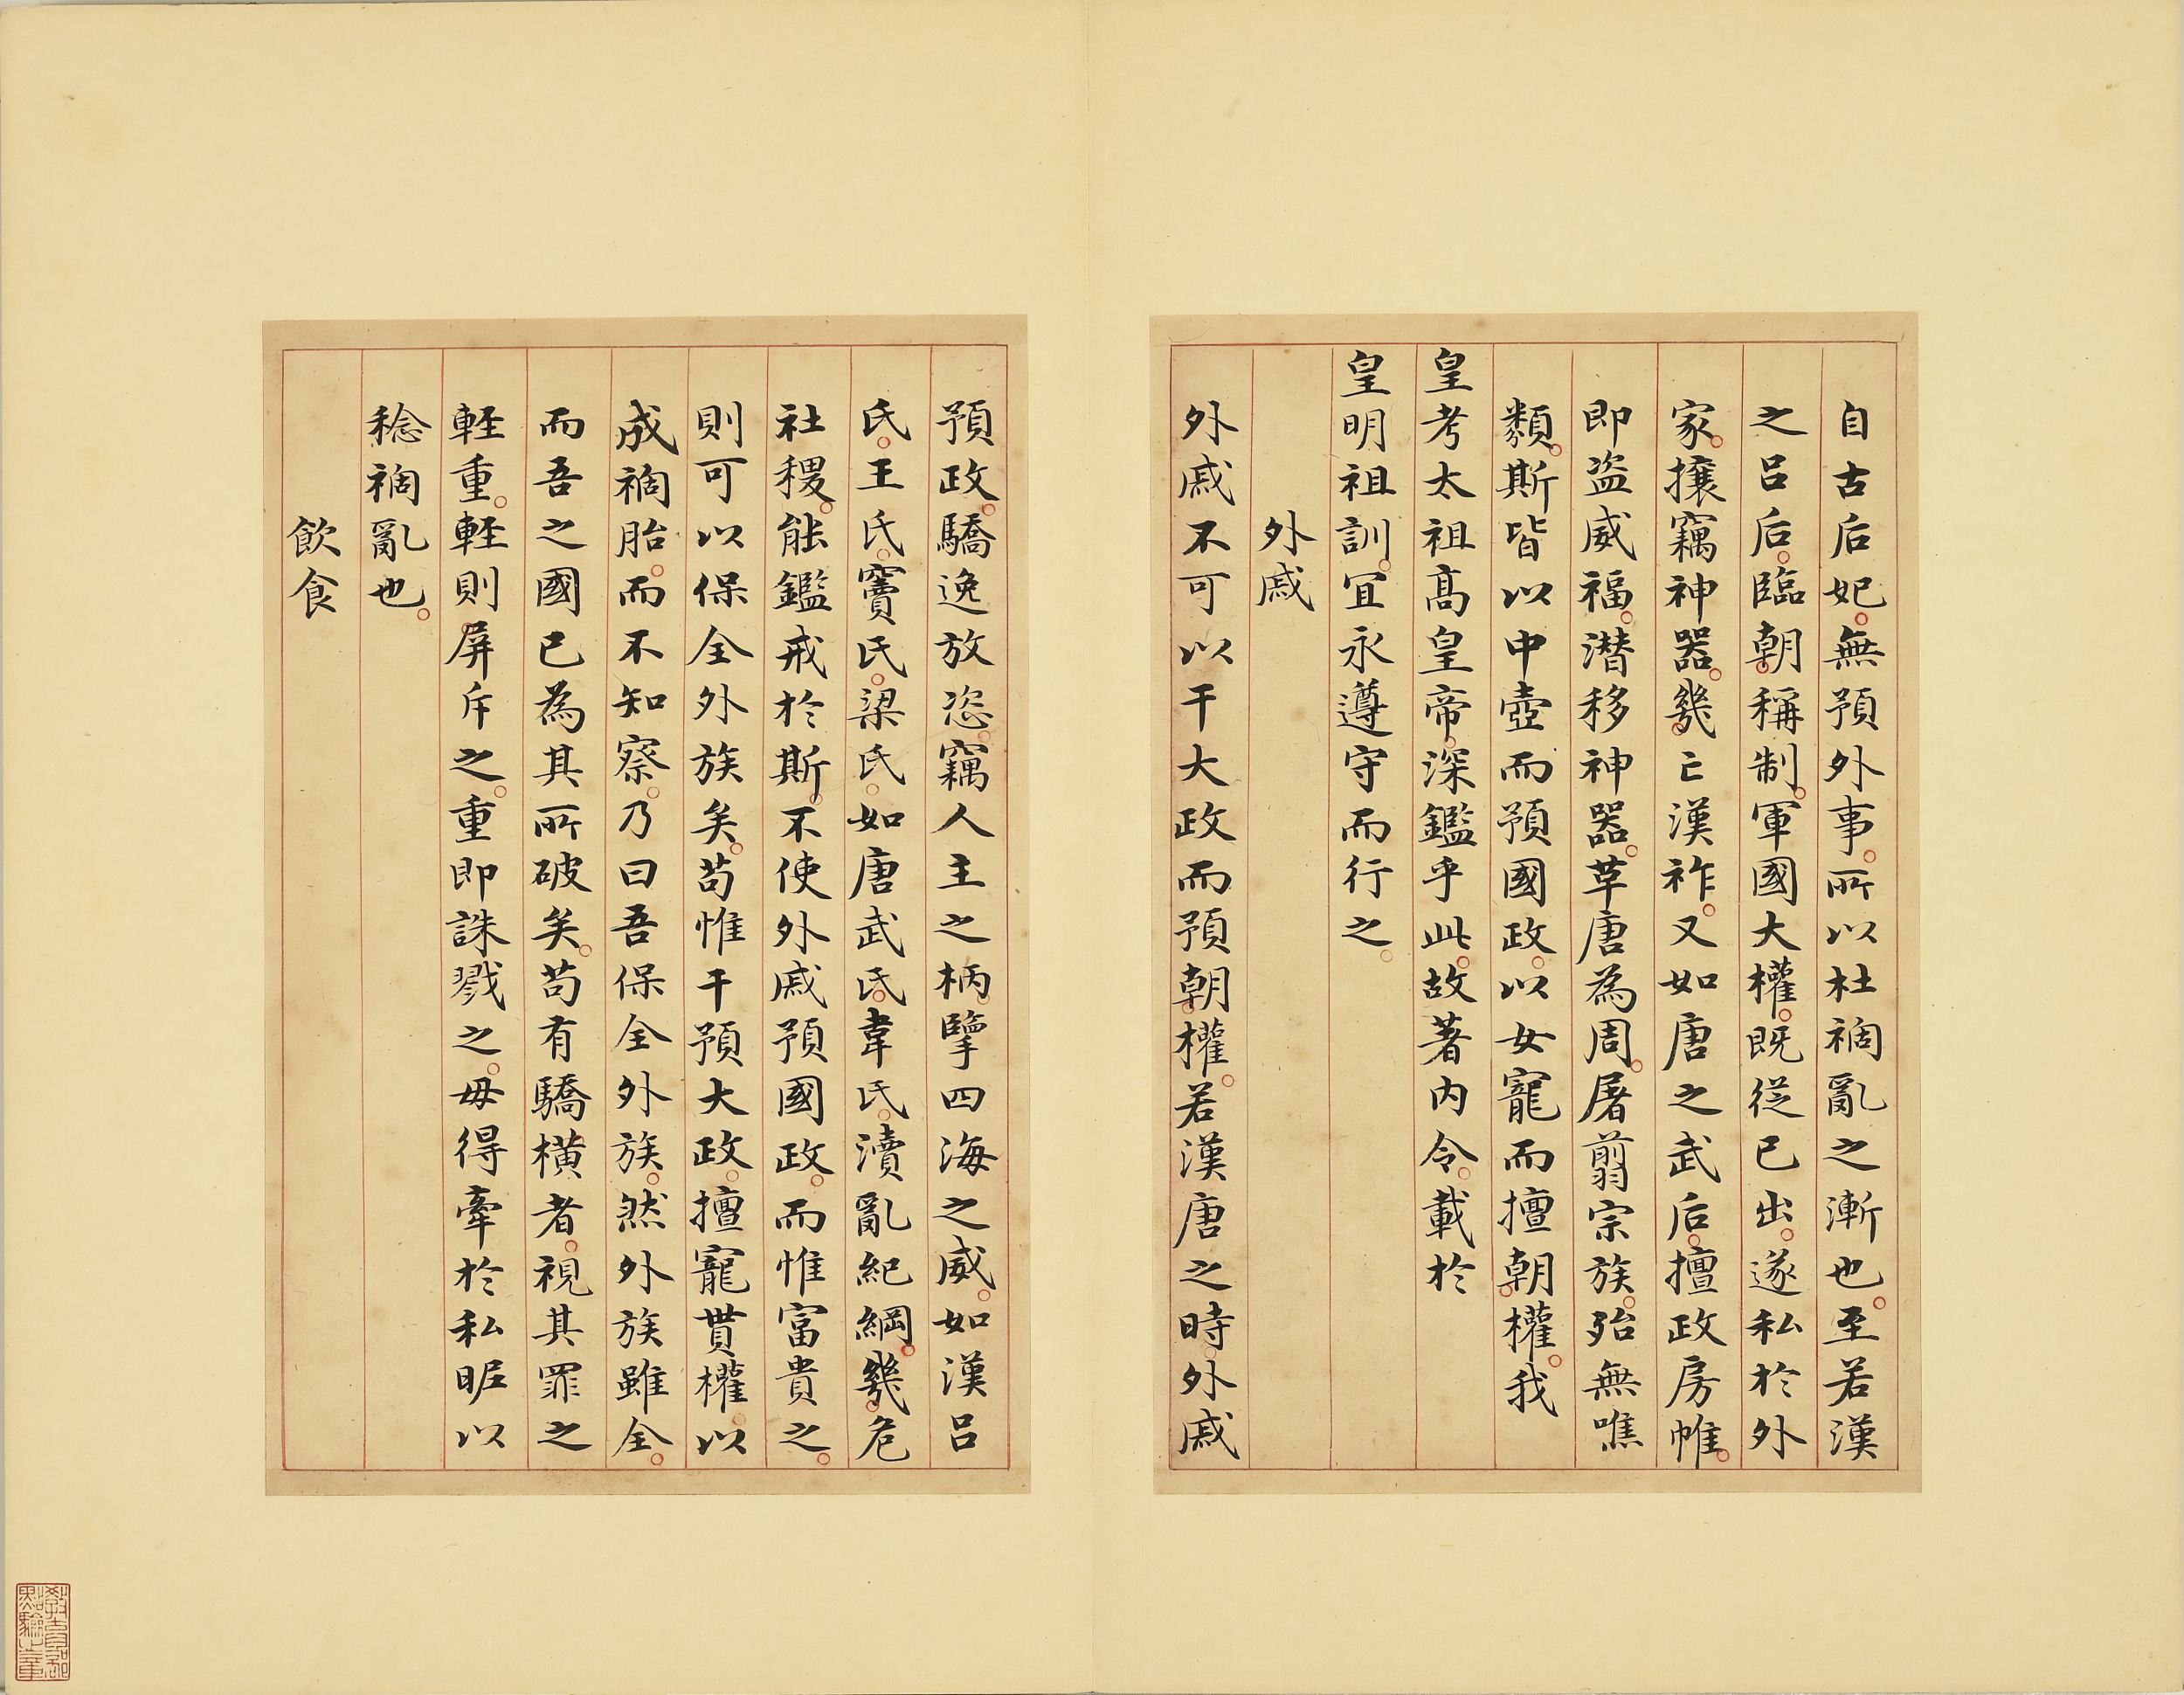 自古后妃無預外事所以杜禍亂之漸也至若漢
之呂后臨朝稱制軍國大權既從已出遂私於外
家攘竊神器幾亡漢祚又如唐之武后擅政房帷
即盜威福潛移神器革唐為周屠翦宗族殆無噍
類斯皆以中壼而預國政以女寵而擅朝權我
皇考太祖高皇帝深鑑乎此故著內令載於
皇明祖訓宜永遵守而行之
外戚
外戚不可以干大政而預朝權若漢唐之時外戚
預政驕逸放恣竊人主之柄擥四海之威如漢呂
氏王氏竇氏梁氏如唐武氏韋氏瀆亂紀綱幾危
社稷能鑑戒於斯不使外戚預國政而惟富貴之
則可以保全外族矣苟惟干預大政擅寵貫權以
成禍胎而不知察乃曰吾保全外族然外族雖全
而吾之國已為其所破矣苟有驕橫者視其罪之
輕重輕則屏斥之重即誅戮之毋得牽於私昵以
稔禍亂也
飲食